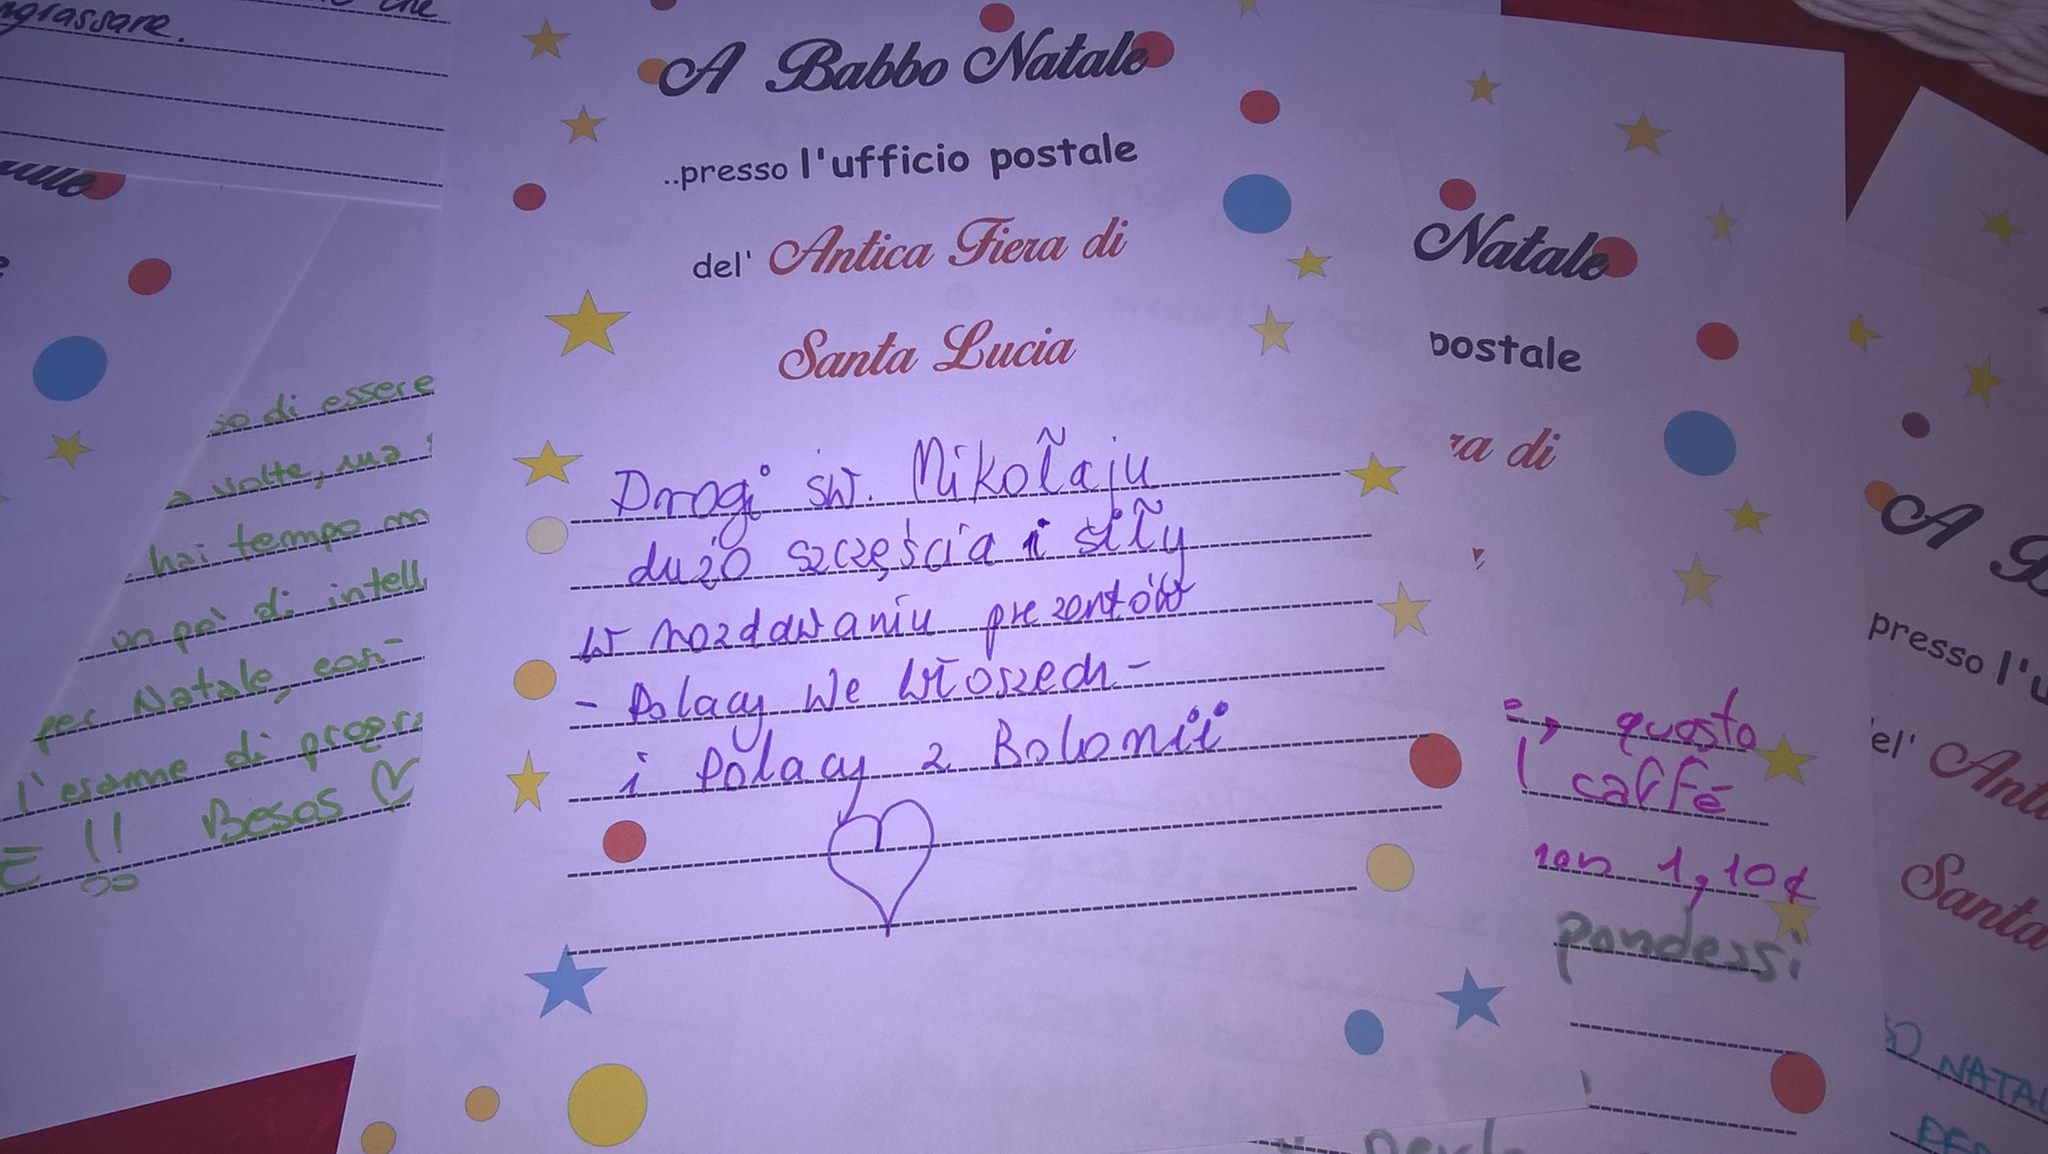 ngrassare.
A Babbo Natale
..presso l'ufficio postale
del' Antica Fiera di
Santa Lucia
Drogi św. Mikołaju
dużo szczęścia i siły
w rozdawaniu prezentów
- Polacy we Włoszech -
i Polacy z Bolonii
di essere
volte, ma
hai tempo
un po' di intell
per Natale, cosi-
l'esame di progr
E !! Besos
Natale
postale
ra di
, questo
l caffé
1,10¢
pandessi
A B
presso l'u
el' Anti
Santa
BO NATAL
PER